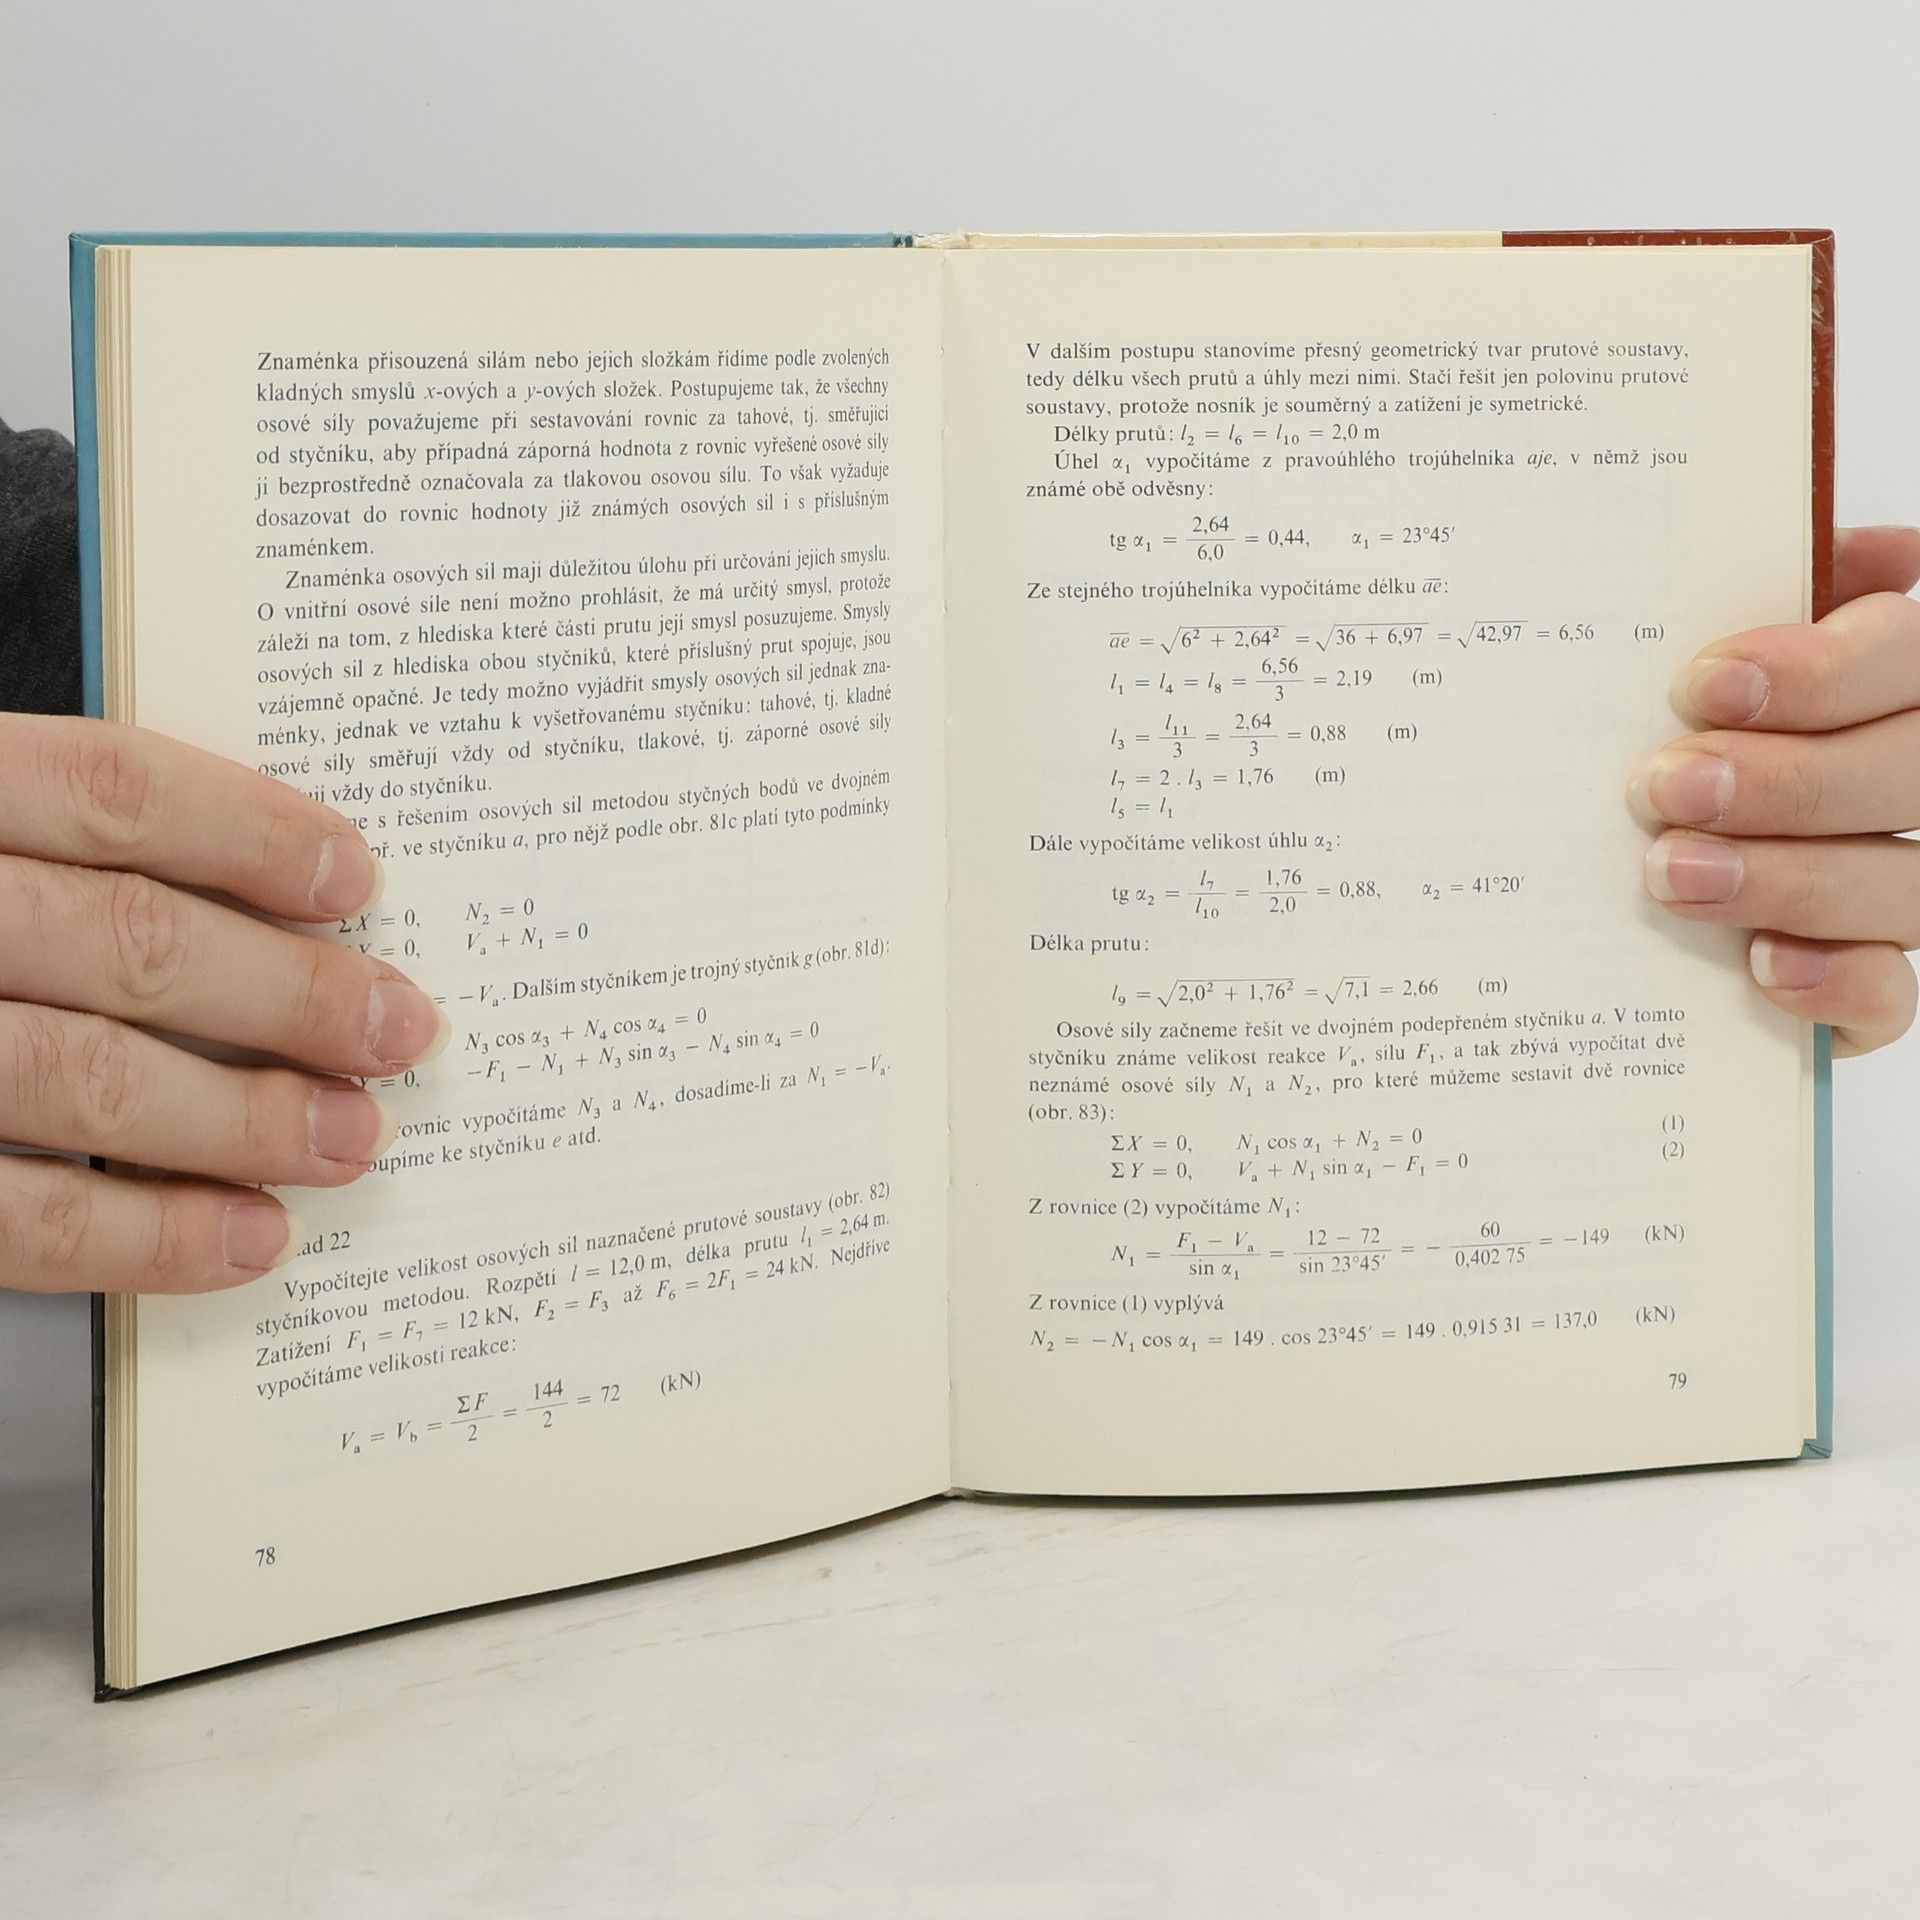 Znaménka přisouzená silám nebo jejich složkám řídíme podle zvolených
kladných smyslů x-ových a y-ových složek. Postupujeme tak, že všechny
osové síly považujeme při sestavování rovnic za tahové, tj. směřující
od styčníku, aby případná záporná hodnota z rovnic vyřešené osové síly
ji bezprostředně označovala za tlakovou osovou sílu. To však vyžaduje
dosazovat do rovnic hodnoty již známých osových sil i s příslušným
znaménkem.
Znaménka osových sil mají důležitou úlohu při určování jejich smyslu.
O vnitřní osové síle není možno prohlásit, že má určitý smysl, protože
záleží na tom, z hlediska které části prutu její smysl posuzujeme. Smysly
osových sil z hlediska obou styčníků, které příslušný prut spojuje, jsou
vzájemně opačné. Je tedy možno vyjádřit smysly osových sil jednak zna-
ménky, jednak ve vztahu k vyšetřovanému styčníku: tahové, tj. kladné
osové síly směřují vždy od styčníku, tlakové, tj. záporné osové síly
vždy do styčníku.
s řešením osových sil metodou styčných bodů ve dvojném
ve styčníku a, pro nějž podle obr. 81c platí tyto podmínky
ΣX = 0, N₂ = 0
= 0, Vₐ + N₁ = 0
= −Vₐ. Dalším styčníkem je trojný styčník g (obr. 81d):
N₃ cos α₃ + N₄ cos α₄ = 0
= 0, −F₁ − N₁ + N₃ sin α₃ − N₄ sin α₄ = 0
rovnic vypočítáme N₃ a N₄, dosadíme-li za N₁ = −Vₐ.
ke styčníku e atd.
22
Vypočítejte velikost osových sil naznačené prutové soustavy (obr. 82)
styčníkovou metodou. Rozpětí l = 12,0 m, délka prutu l₁ = 2,64 m.
Zatížení F₁ = F₇ = 12 kN, F₂ = F₃ až F₆ = 2F₁ = 24 kN. Nejdříve
vypočítáme velikosti reakce:
Vₐ = V_b = ΣF/2 = 144/2 = 72 (kN)
78
V dalším postupu stanovíme přesný geometrický tvar prutové soustavy,
tedy délku všech prutů a úhly mezi nimi. Stačí řešit jen polovinu prutové
soustavy, protože nosník je souměrný a zatížení je symetrické.
Délky prutů: l₂ = l₆ = l₁₀ = 2,0 m
Úhel α₁ vypočítáme z pravoúhlého trojúhelníka aje, v němž jsou
známé obě odvěsny:
tg α₁ = 2,64/6,0 = 0,44, α₁ = 23°45′
Ze stejného trojúhelníka vypočítáme délku a̅e̅:
a̅e̅ = √(6² + 2,64²) = √(36 + 6,97) = √42,97 = 6,56 (m)
l₁ = l₄ = l₈ = 6,56/3 = 2,19 (m)
l₃ = l₁₁/3 = 2,64/3 = 0,88 (m)
l₇ = 2 . l₃ = 1,76 (m)
l₅ = l₁
Dále vypočítáme velikost úhlu α₂:
tg α₂ = l₇/l₁₀ = 1,76/2,0 = 0,88, α₂ = 41°20′
Délka prutu:
l₉ = √(2,0² + 1,76²) = √7,1 = 2,66 (m)
Osové síly začneme řešit ve dvojném podepřeném styčníku a. V tomto
styčníku známe velikost reakce Vₐ, sílu F₁, a tak zbývá vypočítat dvě
neznámé osové síly N₁ a N₂, pro které můžeme sestavit dvě rovnice
(obr. 83):
ΣX = 0, N₁ cos α₁ + N₂ = 0 (1)
ΣY = 0, Vₐ + N₁ sin α₁ − F₁ = 0 (2)
Z rovnice (2) vypočítáme N₁:
N₁ = (F₁ − Vₐ)/sin α₁ = (12 − 72)/sin 23°45′ = − 60/0,402 75 = −149 (kN)
Z rovnice (1) vyplývá
N₂ = −N₁ cos α₁ = 149 . cos 23°45′ = 149 . 0,915 31 = 137,0 (kN)
79